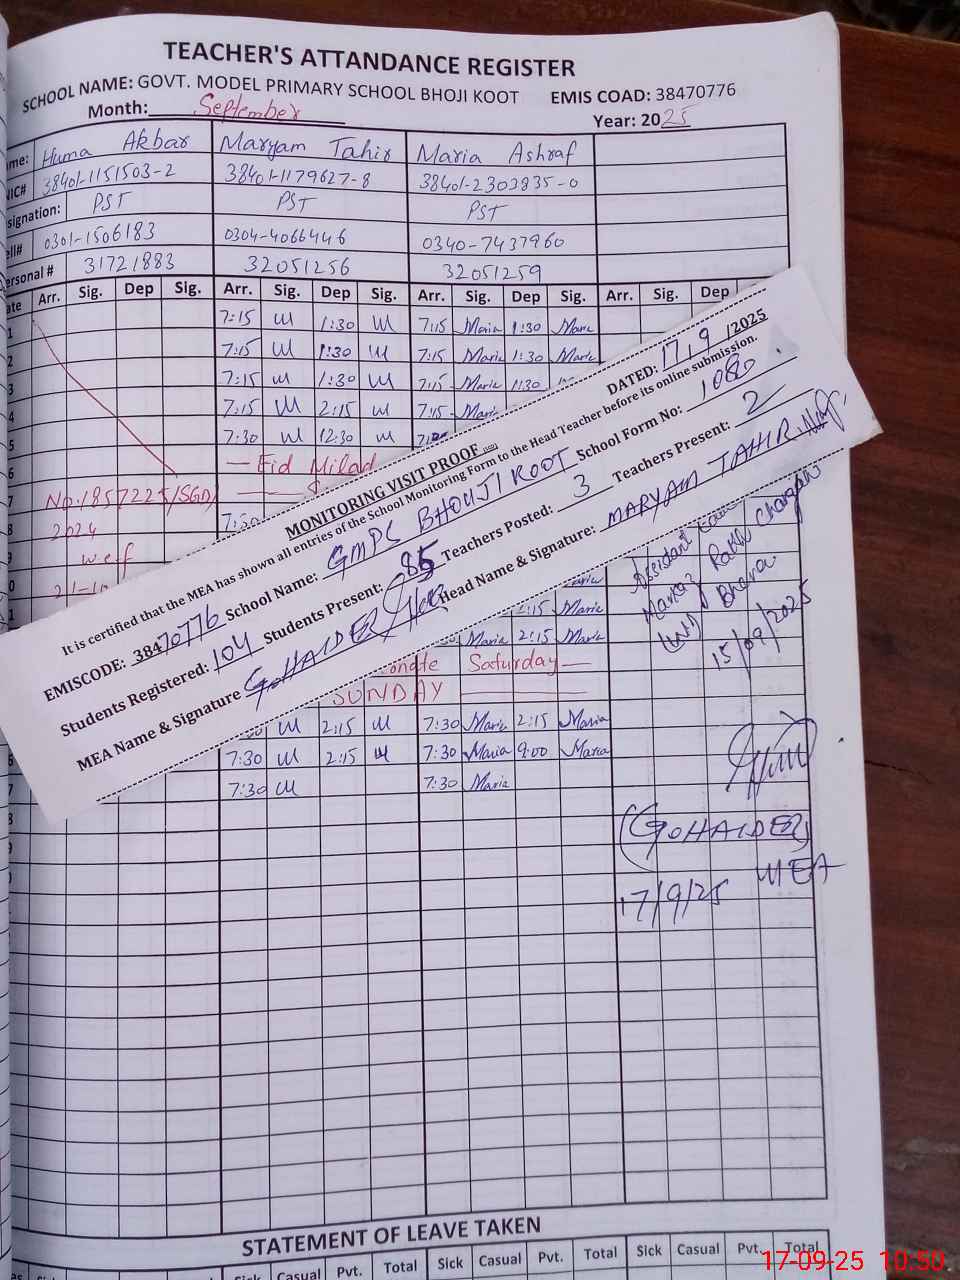 TEACHER'S ATTANDANCE REGISTER
SCHOOL NAME: GOVT. MODEL PRIMARY SCHOOL BHOJI KOOT EMIS COAD: 38470776
Month: September Year: 2025
me: Huma Akbar Maryam Tahir Maria Ashraf
NIC# 38401-1151503-2 38401-1179627-8 38401-2303835-0
signation: PST PST PST
ell# 0301-1506183 0304-4066446 0340-7437960
ersonal # 31721883 32051256 32051259
ate Arr. Sig. Dep Sig. Arr. Sig. Dep Sig. Arr. Sig. Dep Sig. Arr. Sig. Dep
1 7:15 1:30 7:15 Maria 1:30 Maria
2 7:15 1:30 7:15 Maria 1:30 Maria
3 7:15 1:30 7:15 Maria 1:30
4 7:15 2:15 7:15 Maria
5 7:30 12:30
6 — Eid Milad
7 No:1857225/SGD/
8 2024 7:30
9 w.ef
MONITORING VISIT PROOF DATED: 17/9/2025
It is certified that the MEA has shown all entries of the School Monitoring Form to the Head Teacher before its online submission.
EMISCODE: 38470776 School Name: GMPS BHOUJI KOOT School Form No: 1080
Students Registered: 104 Students Present: 85 Teachers Posted: 3 Teachers Present: 2
MEA Name & Signature G.HAIDER Head Name & Signature: MARYAM TAHIR
Assistant
Markaz Rakh Charagah
(W) Bhera
15/09/2025
2:15 Maria
Maria 2:15 Maria
Saturday —
SUNDAY
2:15 7:30 Maria 2:15 Maria
7:30 2:15 7:30 Maria 9:00 Maria
7:30 7:30 Maria
(G.HAIDER)
MEA
17/9/25
STATEMENT OF LEAVE TAKEN
Sick Casual Pvt. Total Sick Casual Pvt. Total Sick Casual Pvt. Total
17-09-25 10:50